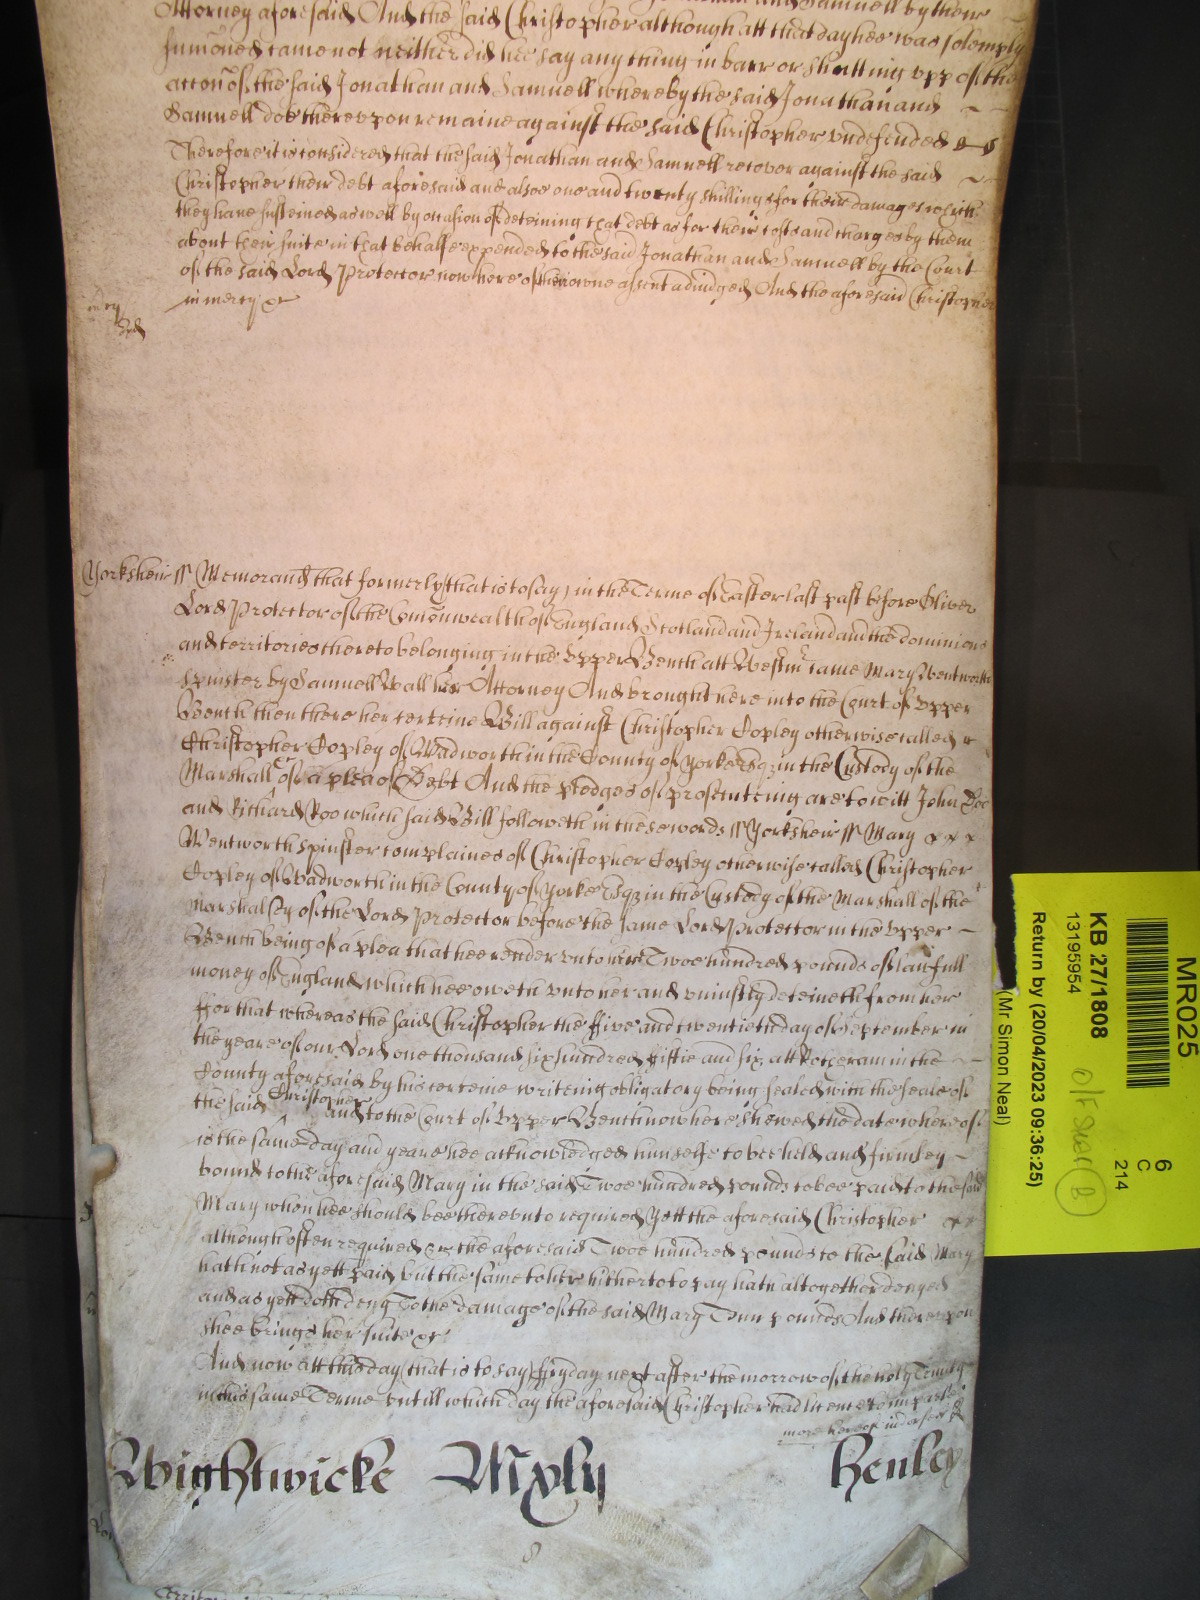 Attorney aforesaid And the said Christopher although att that day hee was solemply
sumoned came not neither did hee say any thing in barr or shutting upp of the
accon of the said Jonathan and Samuell whereby the said Jonathan and
Samuell doe thereupon remaine against the said Christopher undefended
Therefore it is considered that the said Jonathan and Samuell recover against the said
Christopher their debt aforesaid and alsoe one and twenty shillings for their damages which
they have susteined as well by occasion of deteining that debt as for their costs and charges by them
about their suite in that behalfe expended to the said Jonathan and Samuell by the Court
of the said Lord Protector now here of their owne assent adiudged And the aforesaid Christopher
in mercy &c
Yorksheir ss Memorand that formerly (that is to say) in the Terme of Easter last past before Oliver
Lord Protector of the Comonwealth of England Scotland and Ireland and the dominions
and territories thereto belonging in the Upper Bench att Westmr came Mary Wentworth
spinster by Samuell Wall her Attorney And brought here into the Court of Upper
Bench then there her certeine Bill against Christopher Copley otherwise called
Christopher Copley of Wadworth in the County of Yorke Esqz in the Custody of the
Marshall &c of a plea of Debt And the pledges of prosecuteing are to witt John Doe
and Richard Roo which said Bill followeth in these words ss Yorksheir ss Mary
Wentworth spinster complaines of Christopher Copley otherwise called Christopher
Copley of Wadworth in the County of Yorke Esqz in the Custody of the Marshall of the
Marshalsey of the Lord Protector before the same Lord Protector in the Upper
Bench being of a plea that hee render unto her Twoe hundred pounds of lawfull
money of England which hee oweth unto her and uniustly deteineth from her
ffor that whereas the said Christopher the ffive and twentieth day of September in
the yeare of our Lord one thousand six hundred fiftie and six att Rotheram in the
County aforesaid by his certeine writeing obligatory being sealed with the seale of
the said Christopher and to the Court of Upper Bench now here shewed the date whereof
is the same day and yeare hee acknowledged himselfe to bee held and firmley
bound to the aforesaid Mary in the said Twoe hundred pounds to bee paid to the said
Mary when hee should bee thereunto required Yett the aforesaid Christopher
although often required &c the aforesaid Twoe hundred pounds to the said Mary
hath not as yett paid but the same to her hitherto to pay hath altogether denyed
and as yett doth deny To the damage of the said Mary Tenn pounds And thereupon
shee brings her suite &c
And now att this day (that is to say) ffryday next after the morrow of the holy Trinity
in this same Terme untill which day the aforesaid Christopher had licence to imparle
more hereof indorsed
Wightwicke Mxly Henley
MR025
6
C
214
KB 27/1808
13195954
Return by (20/04/2023 09:36:25)
(Mr Simon Neal)
B